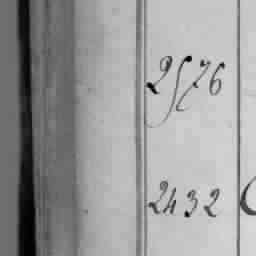 2576
2432